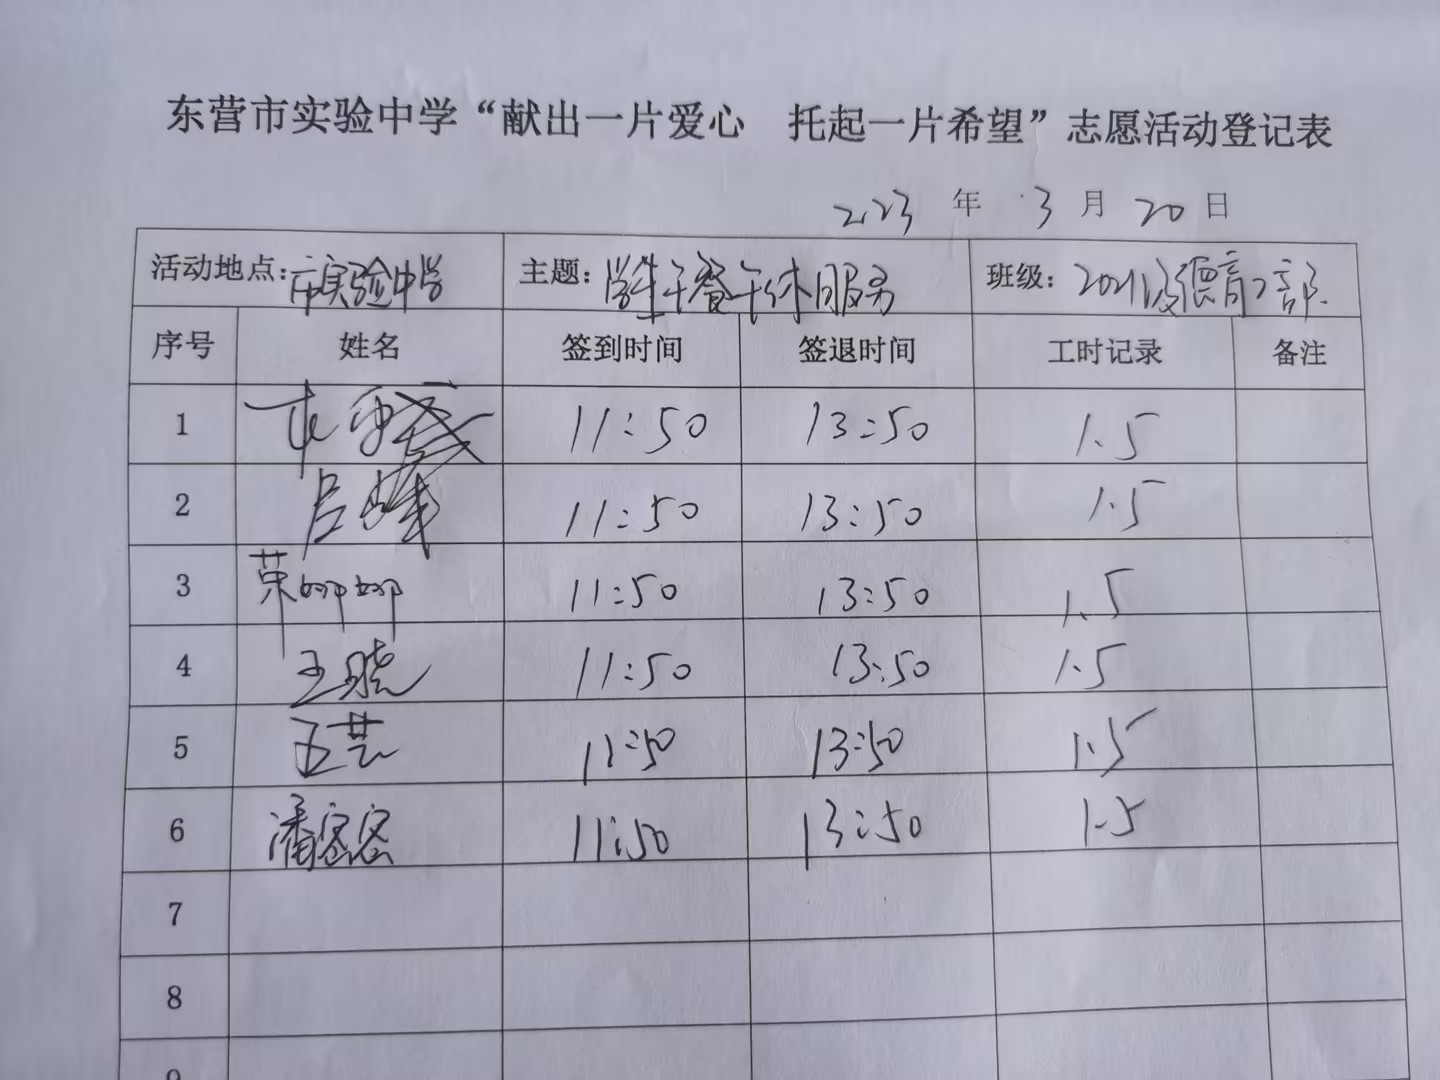 东营市实验中学“献出一片爱心 托起一片希望”志愿活动登记表
2023 年 3 月 20 日
活动地点:市实验中学 主题:学生午餐午休服务 班级:2021级德育2部.
序号 姓名 签到时间 签退时间 工时记录 备注
1 11:50 13:50 1.5
2 吕峰 11:50 13:50 1.5
3 荣娜娜 11:50 13:50 1.5
4 王晓 11:50 13:50 1.5
5 王芸 11:50 13:50 1.5
6 潘密密 11:50 13:50 1.5
7
8
9